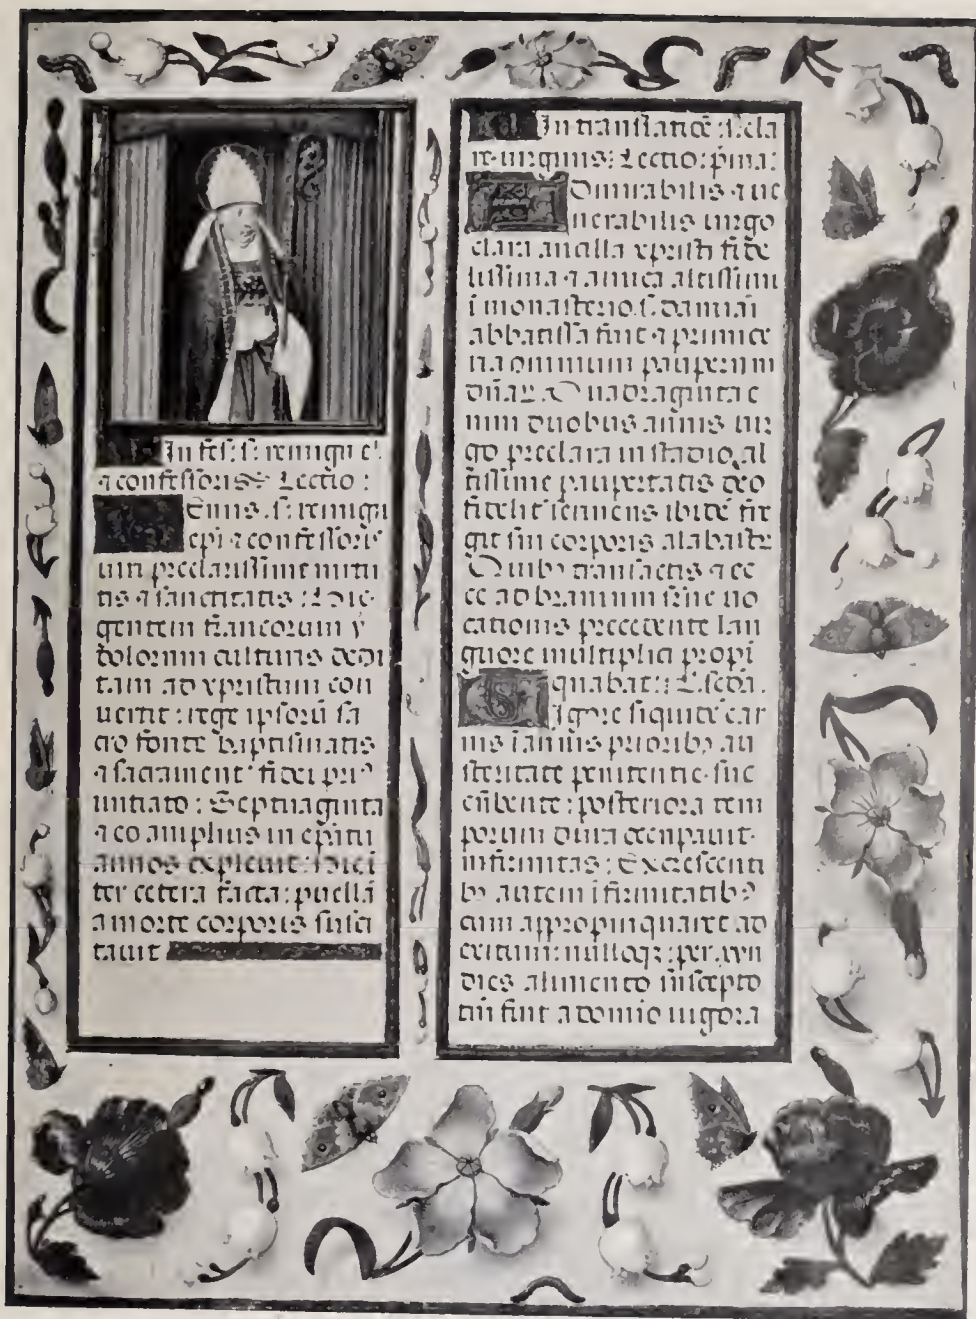 In fes. s. remigii ep̄.
⁊ confessoris Lectio :
Enus . s. remigii
ep̄i ⁊ confessoris
uiri preclarissime uirtu
tis ⁊ sanctitatis :
gentem francorum ydolorum
cultius dedi
tam ad xp̄istum con
uertit : rege ipsorū sa
cro fonte baptismatis
⁊ sacrament fidei pri⁹
initiato : Septuaginta
⁊ eo amplius in ep̄atu
annos expleuit :
ter cetera facta : puellā
a morte corporis susci
tauit
In translatiōe s. cla
re uirginis : Lectio : p̄ma :
Dmirabilis ⁊ ue
nerabilis uirgo
clara ancilla xp̄isti fide
lissima ⁊ amica altissimi
ī monasterio . s. damiāi
abbatissa fuit ⁊ primice
ria omnium pauperum
dn̄aꝝ. Quadraginta e
nim duobus annis uir
go preclara in stadio al
tissime paupertatis deo
fidelit seruiens ibidē fre
git sui corporis alabastꝝ
Quibꝰ transactis ⁊ ec
ce ad brauium sūne uo
cationis precedente lan
guore multiplici propī
quabat : L. scd̄a.
Igore siquidē car
nis ī annis prioribꝰ au
steritate penitentie suc
cūbente : posteriora tem
porum dira occupauit
infirmitas : Excrescenti
bꝰ autem ī firmitatibꝰ
cum appropinquaret ad
exitum : nulloqꝫ : per .xvii
dies alimento suscepto
tn̄ fuit a domīo uigora